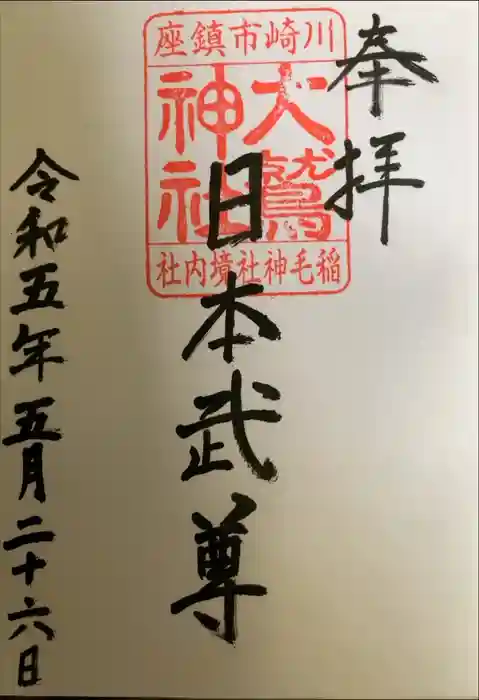 奉拝
川崎市鎮座
大鷲
神社
稲毛神社境内社
日本武尊
令和五年五月二十六日